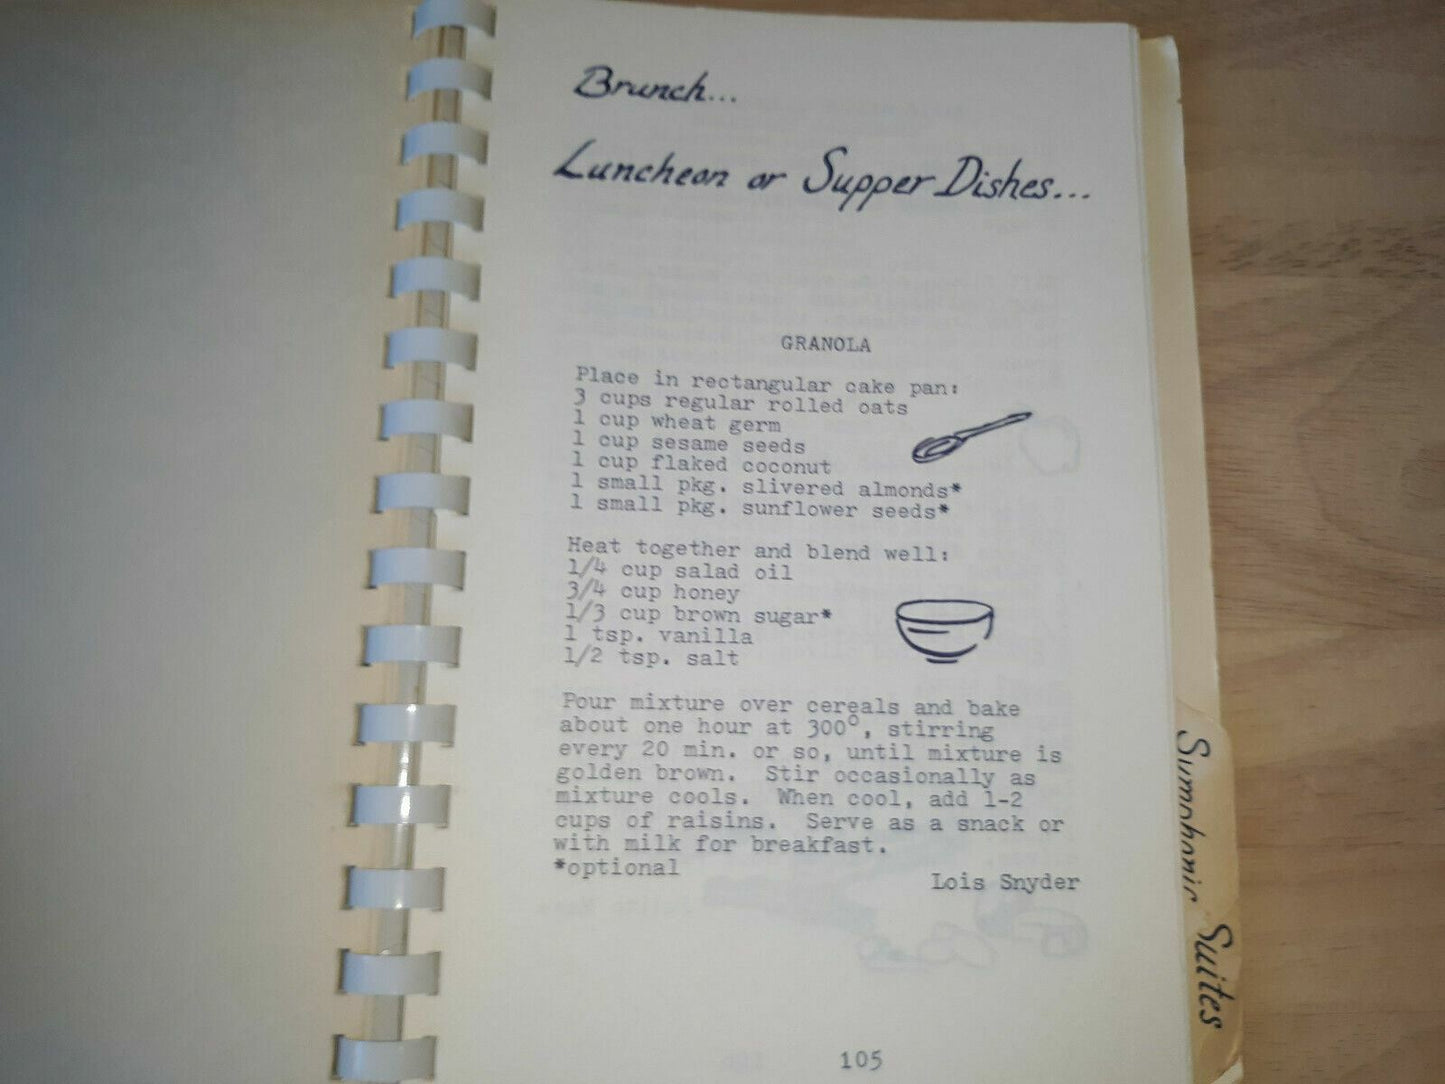 Brunch...
Luncheon or Supper Dishes...
GRANOLA
Place in rectangular cake pan:
3 cups regular rolled oats
1 cup wheat germ
1 cup sesame seeds
1 cup flaked coconut
1 small pkg. slivered almonds*
1 small pkg. sunflower seeds*
Heat together and blend well:
1/4 cup salad oil
3/4 cup honey
1/3 cup brown sugar*
1 tsp. vanilla
1/2 tsp. salt
Pour mixture over cereals and bake
about one hour at 300°, stirring
every 20 min. or so, until mixture is
golden brown. Stir occasionally as
mixture cools. When cool, add 1-2
cups of raisins. Serve as a snack or
with milk for breakfast.
*optional
Lois Snyder
105
Symphonic Suites